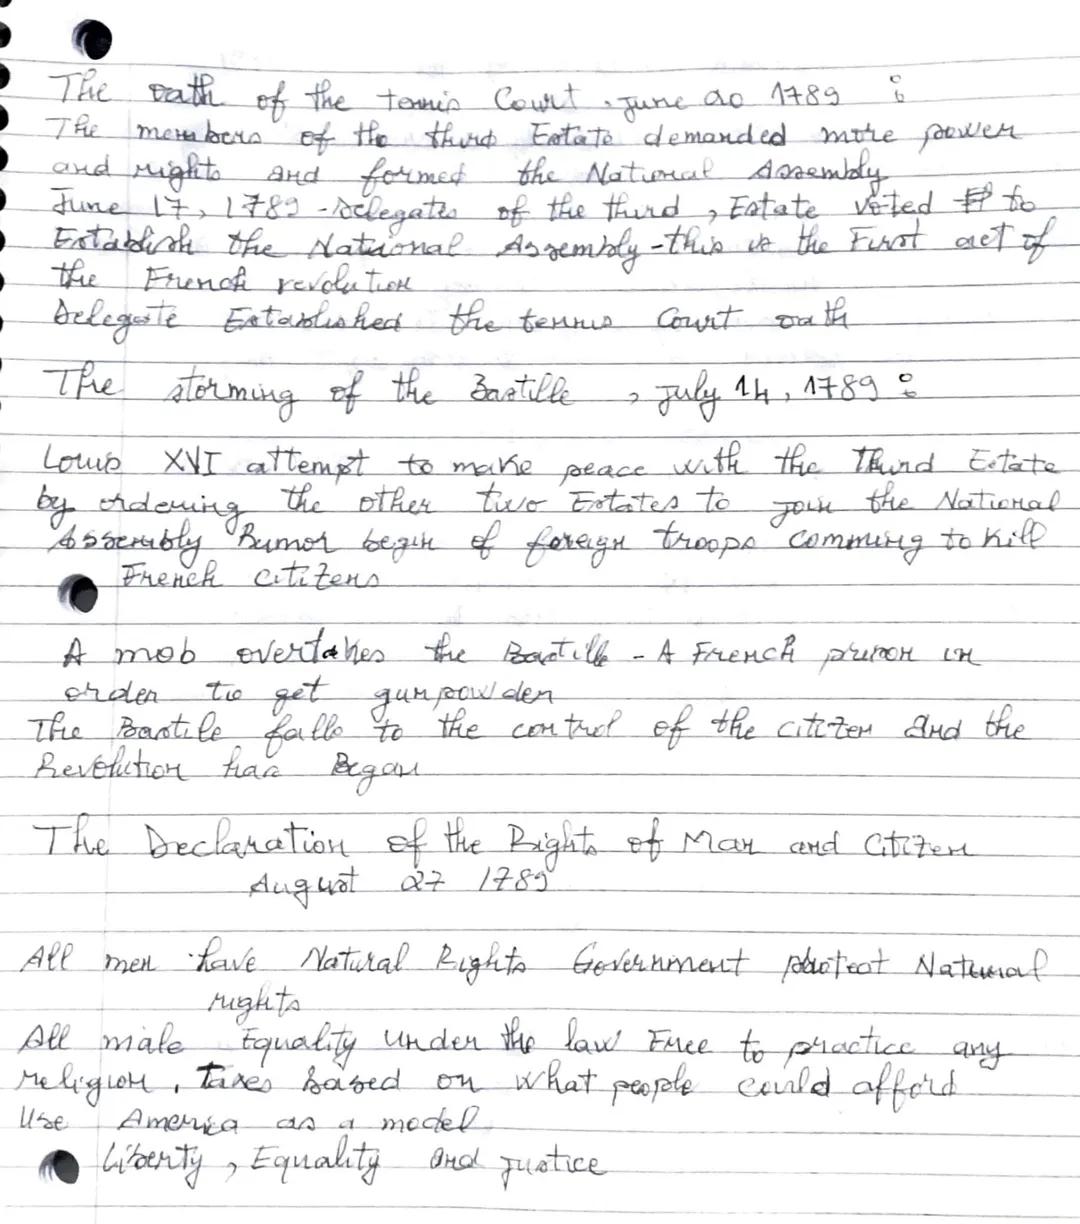 The oath of the tennis Court . June 20 1789 :
The members of the third Estate demanded more power
and rights and formed the National Assembly
June 17, 1789 - Delegates of the third , Estate voted to
Establish the National Assembly - this is the First act of
the French revolution
Delegate Established the tennis Court oath
The storming of the Bastille , July 14, 1789 :
Louis XVI attempt to make peace with the Third Estate
by ordering the other two Estates to join the National
Assembly Rumor begin of foreign troops comming to kill
French citizens
A mob overtakes the Bastille - A French prison in
order to get gunpowder
The Bastile falls to the control of the citizen and the
Revolution has Began
The Declaration of the Rights of Man and Citizen
August 27 1789
All men have Natural Rights Government protect Natural
rights
All male Equality under the law Free to practice any
religion , Taxes based on what people could afford
Use America as a model
Liberty , Equality and justice